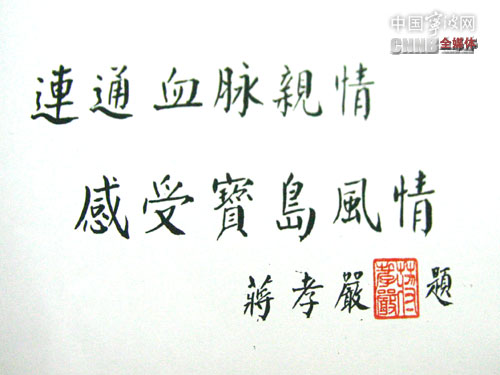 中国宁波网
CNNB 全媒体
連通血脉親情
感受寶島風情
蔣孝嚴 題